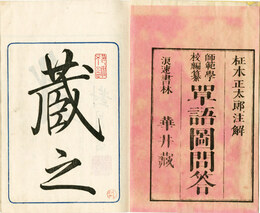 柾木正太郎注解
師範學校編纂
單語圖問答
浪速書林
華井藏
蔵之